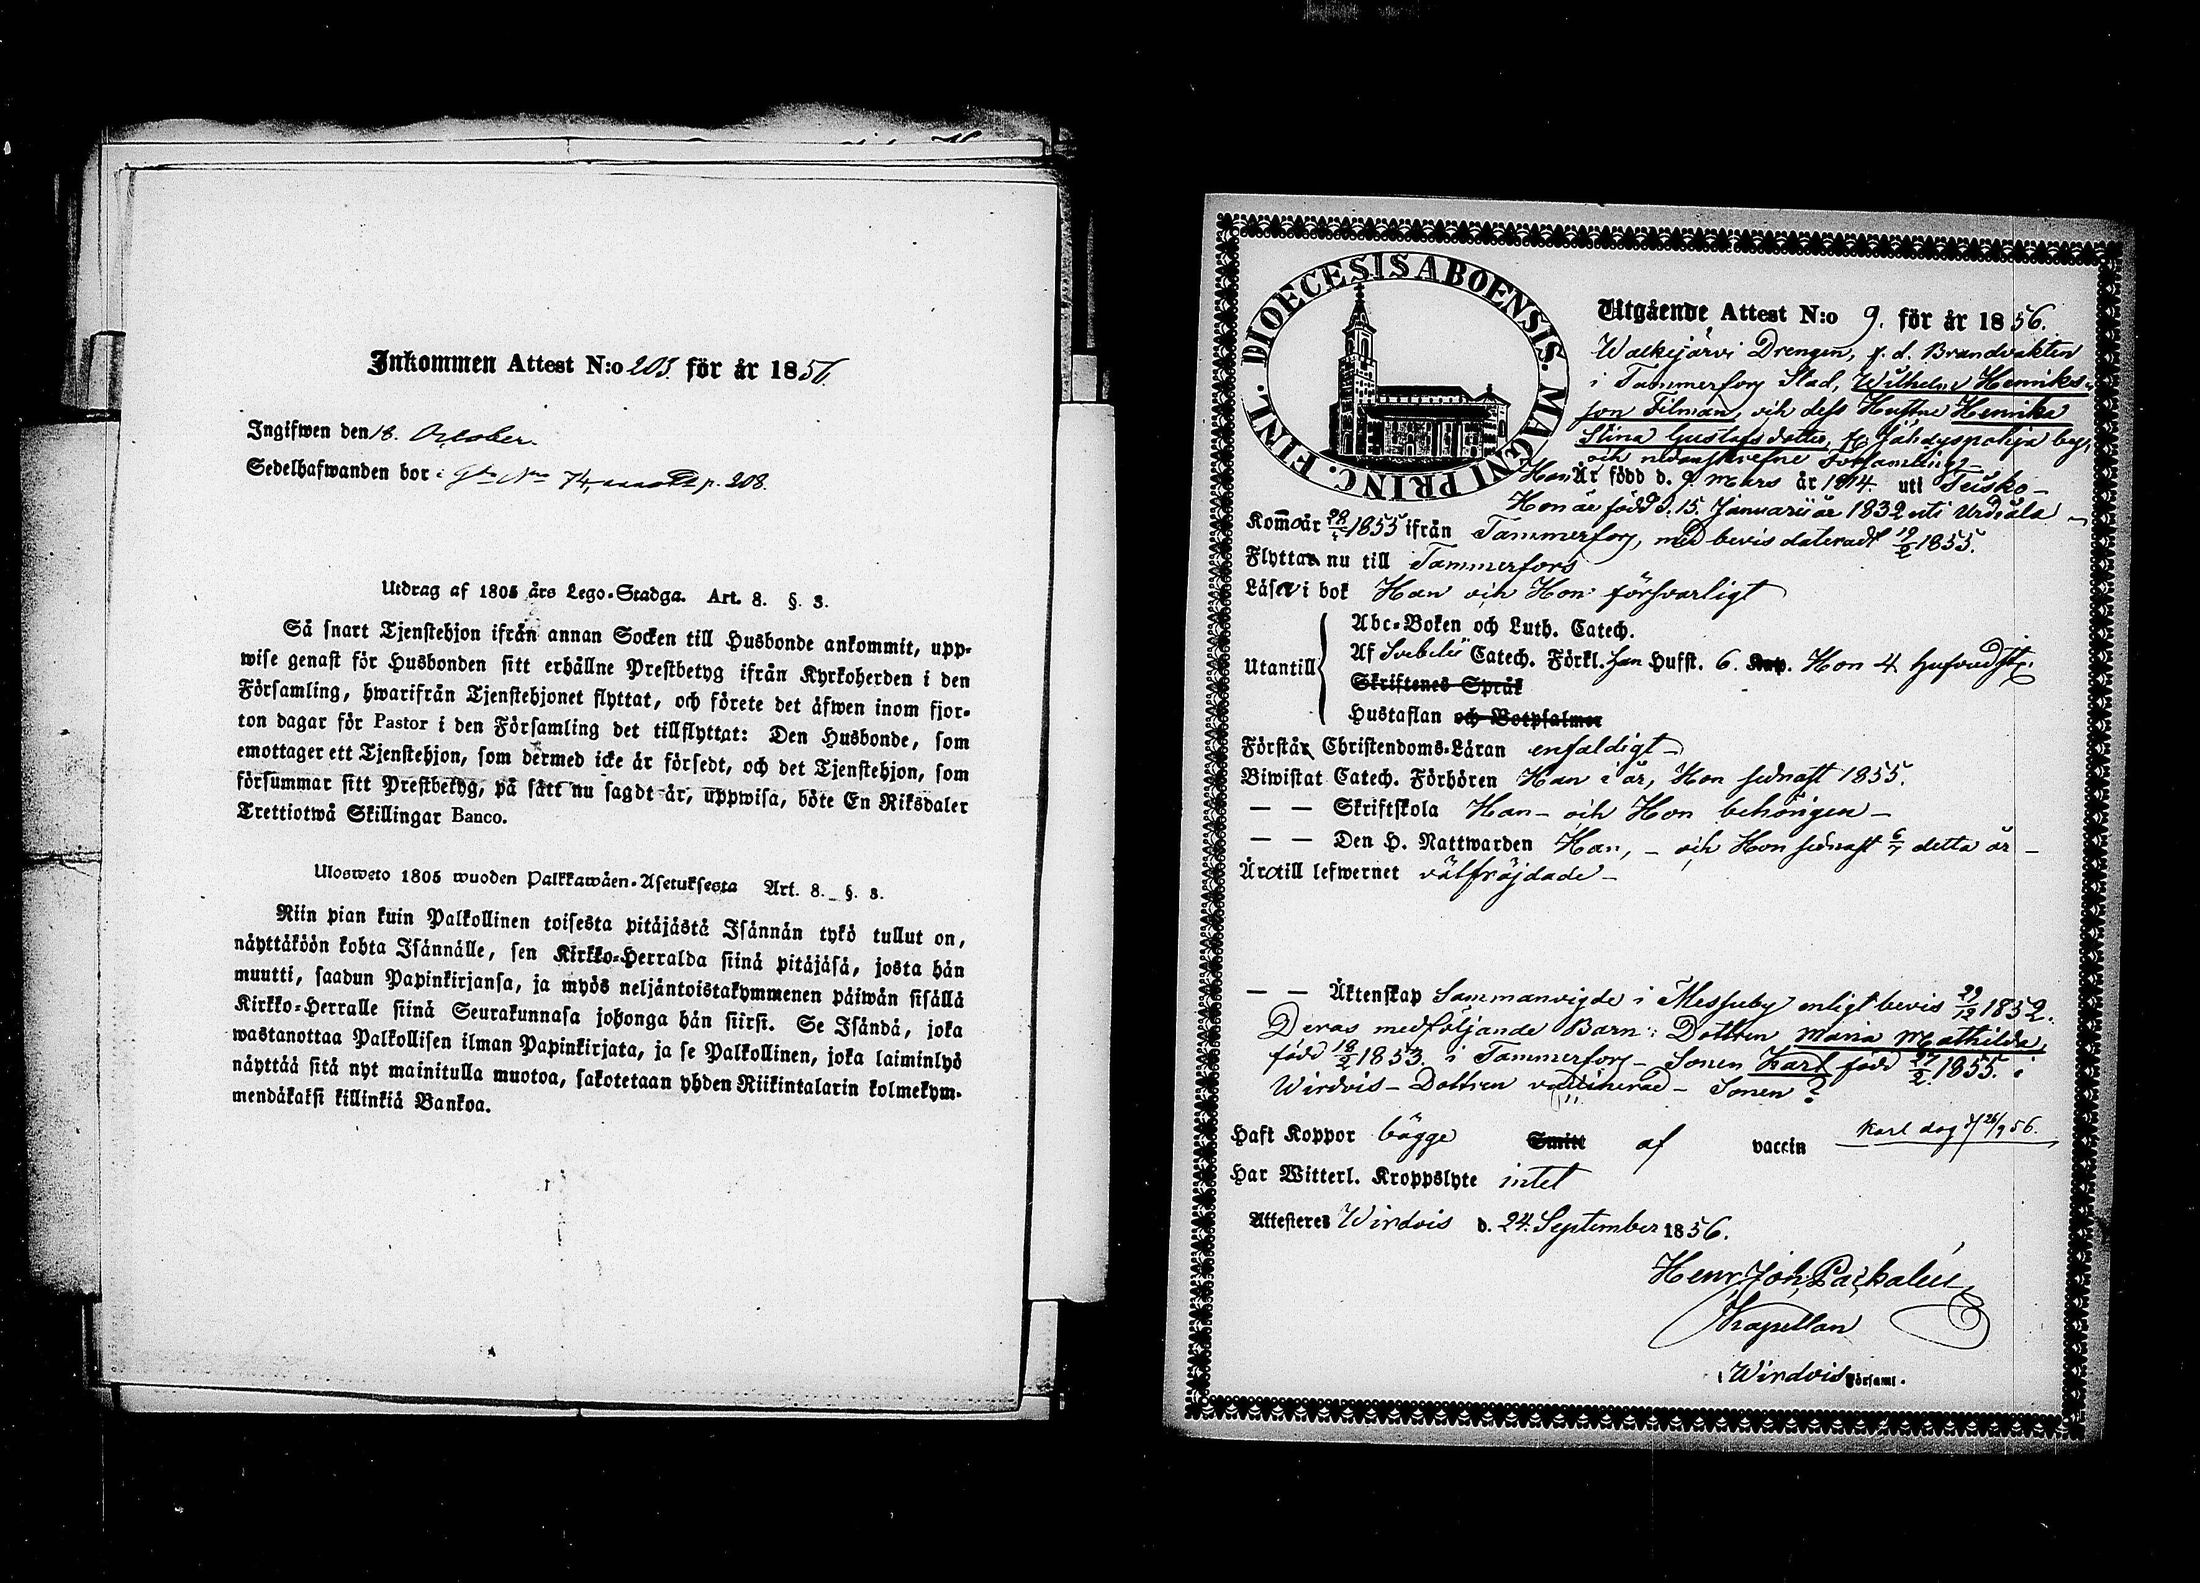 Inkommen Attest N:o 203. för år 1856.
Ingifwen den 18. October.
Sedelhafwanden bor i Gdn Nro 74, p. 208.
Utdrag af 1805 års Lego-Stadga. Art. 8. §. 3.
Så snart Tjenstehjon ifrån annan Socken till Husbonde ankommit, upp-
wise genast för Husbonden sitt erhållne Prestbetyg ifrån Kyrkoherden i den
Församling, hwarifrån Tjenstehjonet flyttat, och förete det äfwen inom fjor-
ton dagar för Pastor i den Församling det tillflyttat: Den Husbonde, som
emottager ett Tjenstehjon, som dermed icke är försedt, och det Tjenstehjon, som
försummar sitt Prestbetyg, på sätt nu sagdt är, uppwisa, böte En Riksdaler
Trettiotwå Skillingar Banco.
Ulosweto 1805 wuoden Palkkawäen-Asetuksesta Art. 8. §. 3.
Niin pian kuin Palkollinen toisesta pitäjästä Isännän tykö tullut on,
näyttäköön kohta Isännälle, sen Kirkko-Herralda siinä pitäjäsä, josta hän
muutti, saadun Papinkirjansa, ja myös neljäntoistakymmenen päiwän sisällä
Kirkko-Herralle siinä Seurakunnasa johonga hän siirsi. Se Isändä, joka
wastanottaa Palkollisen ilman Papinkirjata, ja se Palkollinen, joka laiminlyö
näyttää sitä nyt mainitulla muotoa, sakotetaan yhden Riikintalarin kolmekym-
mendäkaksi killinkiä Bankoa.
DIOECESIS ABOENSIS. MAGNI PRINC. FINL.
Utgående Attest N:o 9. för år 1856.
Walkejärvi Drengen, f. d. Brandvakten
i Tammerfors Stad, Wilhelm Henriks-
son Tilman, och dess Hustru Henrika
Stina Gustafsdotter, fr. Jähdyspohja by,
och nedanskrefne Församling
Han Är född d. 9. Mars år 1814 uti Teisko
Hon är född d. 15. Januarii år 1832 uti Urdiala
Kommo år 28/1855 ifrån Tammerfors, med bevis dateradt 19/2 1855.
Flytta nu till Tammerfors
Läser i bok Han och Hon försvarligt
Utantill
Abc-Boken och Luth. Catech.
Af Svebelii Catech. Förkl. Han Hufst. 6. Kap. Hon 4 hufvudst.
Skriftenes Språk
Hustaflan och Botpsalmer
Förstår Christendoms-Läran enfaldigt
Biwistat Catech. Förhören Han i år, Hon sednast 1855.
— — Skriftskola Han och Hon behörigen
— — Den H. Nattwarden Han, och Hon sednast 6/7 detta år
Äro till lefwernet välfräjdade
— — Äktenskap Sammanvigde i Messuby enligt bevis 29/12 1852.
Deras medföljande Barn: Dottren Maria Mathilda,
född 18/2 1853. i Tammerfors – Sonen Karl född 27/2 1855. i
Wirdois – Dottren vaccinerad – Sonen?
Haft Koppor bägge Smitt af vaccin Karl dog d 26/9 56.
Har Witterl. Kroppslyte intet
Attesteres Wirdois d. 24. September 1856.
Henr. Joh.
Kapellan
i Wirdois Församl.